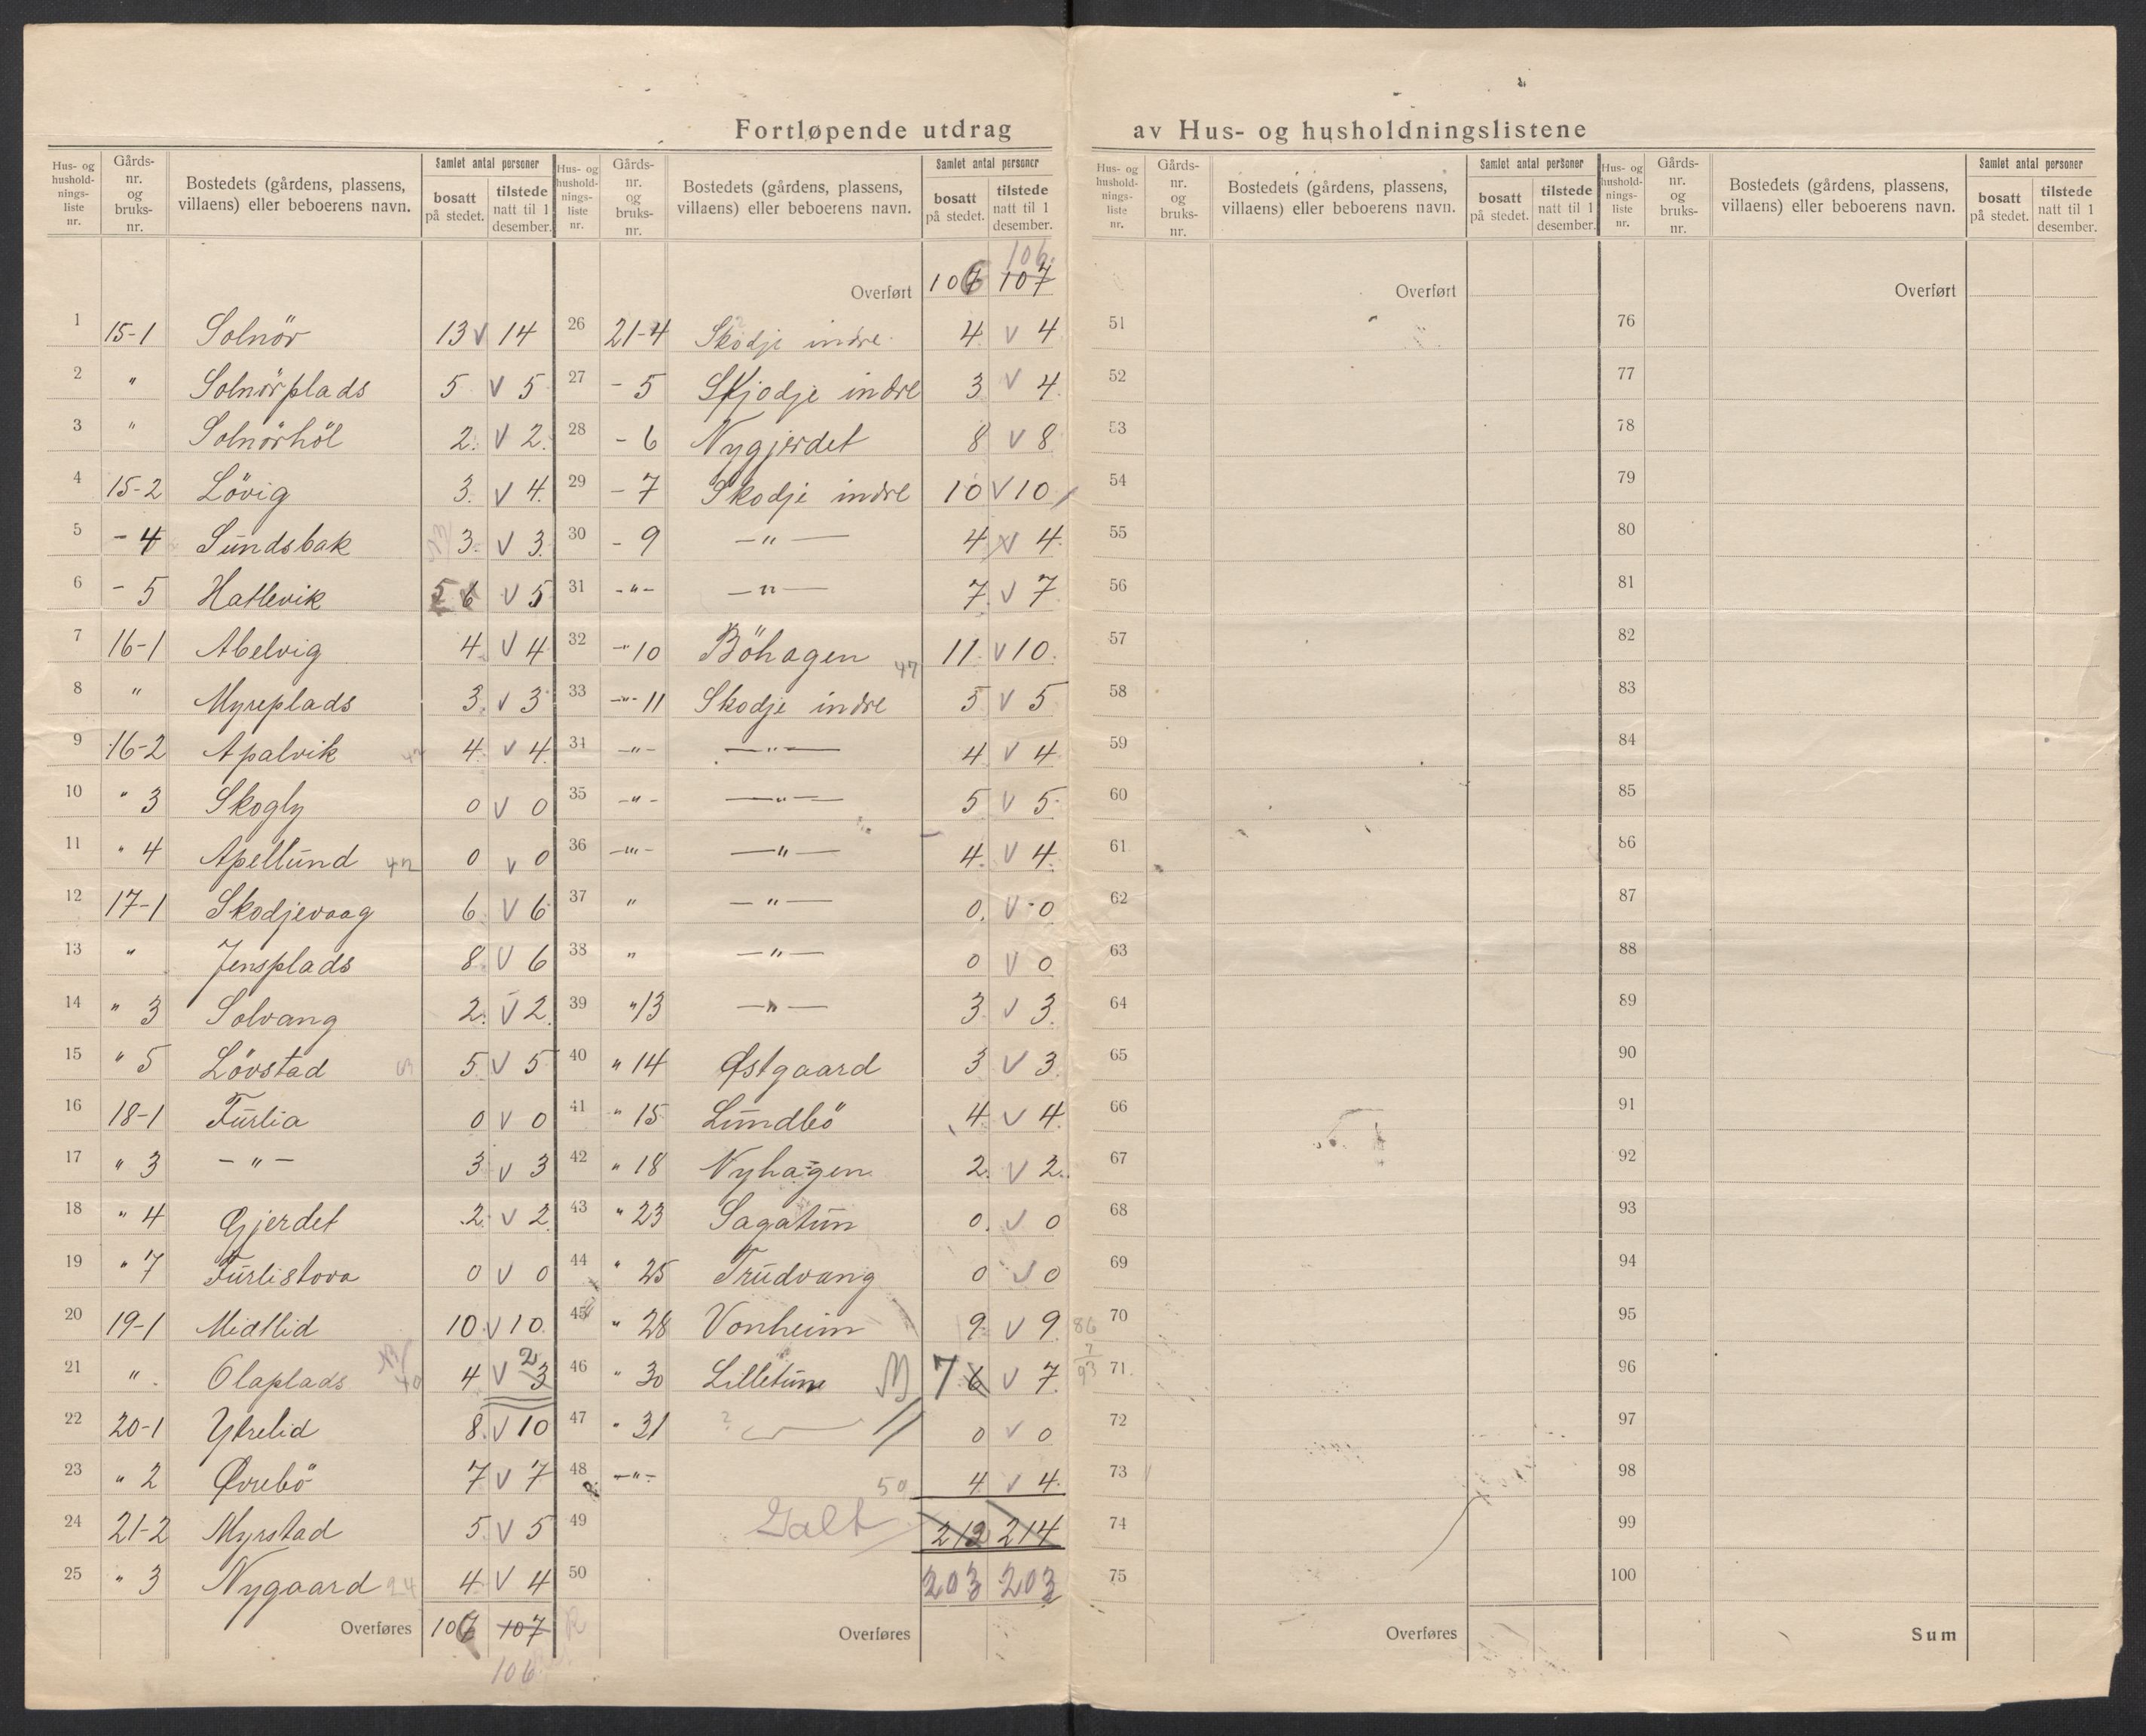 Fortløpende utdrag av Hus- og husholdningslistene
Hus- og hushold-nings-liste nr. Gårds-nr. og bruks-nr. Bostedets (gårdens, plassens, villaens) eller beboerens navn. Samlet antal personer bosatt på stedet. tilstede natt til 1 desember.
1 15-1 Solnör 13 V 14
2 " Solnörplads 5 V 5
3 " Solnörhöl 2. V 2.
4 15-2 Lövig 3. V 4.
5 - 4 Sundsbak 3. V 3.
6 - 5 Hatlevik 5 6 V 5
7 16-1 Abelvig 4 V 4
8 " Myreplads 3. V 3.
9 16-2 Apalvik 4. V 4.
10 " 3 Skogly 0 V 0
11 " 4 Apellund 42 0 V 0
12 17-1 Skodjevaag 6 V 6
13 " Jensplads 8. V 6
14 " 3 Solvang 2. V 2.
15 " 5 Lövstad 5 V 5
16 18-1 Furlia 0 V 0
17 " 3 - " - 3 V 3
18 " 4 Gjerdet 2 V 2
19 " 7 Furlistova 0 V 0
20 19-1 Midtlid 10 V 10
21 " Olaplads 4 V 3 2
22 20-1 Ytrelid 8. V 10
23 " 2 Øvrebö 7 V 7
24 21-2 Myrstad 5. V 5
25 " 3 Nygaard 24 4 V 4
Overføres 106 107
106
Hus- og hushold-nings-liste nr. Gårds-nr. og bruks-nr. Bostedets (gårdens, plassens, villaens) eller beboerens navn. Samlet antal personer bosatt på stedet. tilstede natt til 1 desember.
106.
Overført 106 107
26 21-4 Skodje indre 4 V 4
27 - 5 Skjodje indre 3 V 4
28 - 6 Nygjerdet 8 V 8
29 - 7 Skodje indre 10 V 10
30 - 9 - " - 4 V 4
31 - " - - " - 7. V 7
32 - " 10 Böhagen 47 11. V 10.
33 - " - 11 Skodje indre 5 V 5
34 - " - - " - 4 V 4
35 - " - - " - 5 V 5
36 - " - - " - 4. V 4.
37 " - " - 0. V 0
38 " - " - 0 V 0
39 " 13 - " - 3 V 3.
40 " 14 Østgaard 3 V 3
41 " 15 Lundbö 4. V 4.
42 " 18 Nyhagen 2. V 2.
43 " 23 Sagatun 0. V 0
44 " 25 Trudvang 0 V 0
45 " 28 Vonheim 9. V 9.
46 " 30 Lilletun 7 6 V 7.
47 " 31 ? 0 V 0
48 - " - 50 4 V 4.
49 Galt 212 214
50 203 203
Overføres
86
7
93
Hus- og hushold-nings-liste nr. Gårds-nr. og bruks-nr. Bostedets (gårdens, plassens, villaens) eller beboerens navn. Samlet antal personer bosatt på stedet. tilstede natt til 1 desember.
Overført
51
52
53
54
55
56
57
58
59
60
61
62
63
64
65
66
67
68
69
70
71
72
73
74
75
Overføres
Hus- og hushold-nings-liste nr. Gårds-nr. og bruks-nr. Bostedets (gårdens, plassens, villaens) eller beboerens navn. Samlet antal personer bosatt på stedet. tilstede natt til 1 desember.
Overført
76
77
78
79
80
81
82
83
84
85
86
87
88
89
90
91
92
93
94
95
96
97
98
99
100
Sum